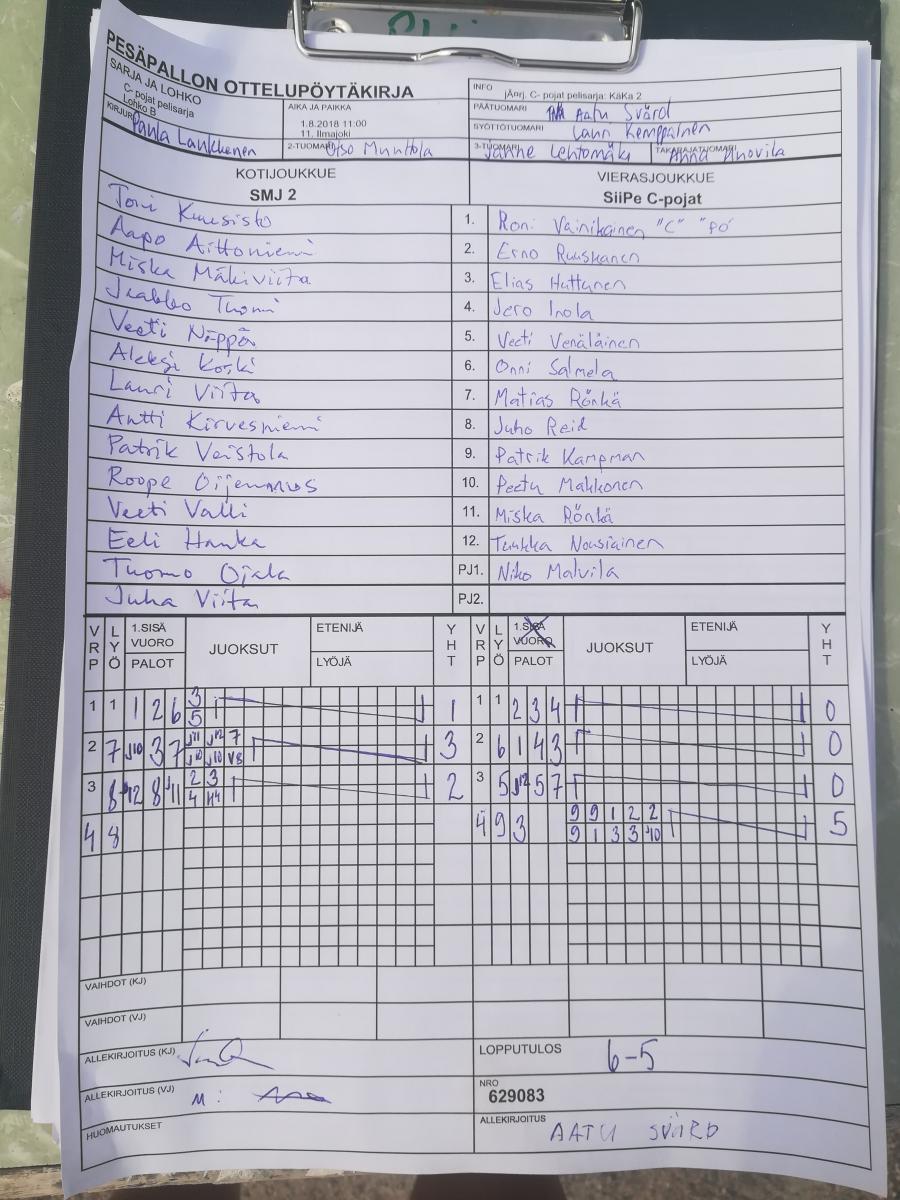 PESÄPALLON OTTELUPÖYTÄKIRJA
SARJA JA LOHKO
C- pojat pelisarja
Lohko B
AIKA JA PAIKKA
1.8.2018 11:00
11. Ilmajoki
INFO
jÄnrj. C- pojat pelisarja: KäKa 2
PÄÄTUOMARI Aatu Svärd
SYÖTTÖTUOMARI Lauri Kemppainen
KIRJURI Paula Laukkonen
2-TUOMARI Otso Munttola
3-TUOMARI Janne Lehtomäki
TAKARAJATUOMARI Anna
KOTIJOUKKUE VIERASJOUKKUE
SMJ 2 SiiPe C-pojat
Joni Kuusisto 1. Roni Vainikainen "C" "PÖ"
Aapo Aittoniemi 2. Erno Ruuskanen
Miska Mäkiviita 3. Elias Huttunen
Jaakko Tuomi 4. Jero Inola
Veeti Näppä 5. Veeti Venäläinen
Aleksi Koski 6. Onni Salmela
Lauri Viita 7. Matias Rönkä
Antti Kirvesniemi 8. Juho Reid
Patrik Veistola 9. Patrik Kampman
Roope 10. Peetu Makkonen
Veeti Valli 11. Miska Rönkä
Eeli Hanka 12. Tuukka Nousiainen
Tuomo Ojala PJ1. Niko Malvila
Juha Viita PJ2.
VRP LYÖ 1.SISÄ VUORO PALOT JUOKSUT ETENIJÄ LYÖJÄ YHT VRP LYÖ 1.SISÄ VUORO PALOT JUOKSUT ETENIJÄ LYÖJÄ YHT
1 1 1 2 6 3 1 1 1 2 3 4 0
5
2 7 J10 3 7 J11 J12 7 3 2 6 1 4 3 0
J10 J10 V8
3 8 J12 8 J11 2 3 2 3 5 J12 5 7 0
4 H4
4 8 4 9 3 9 9 1 2 2 5
9 1 3 3 J10
VAIHDOT (KJ)
VAIHDOT (VJ)
ALLEKIRJOITUS (KJ) LOPPUTULOS 6-5
ALLEKIRJOITUS (VJ) NRO
629083
HUOMAUTUKSET ALLEKIRJOITUS AATU SVÄRD